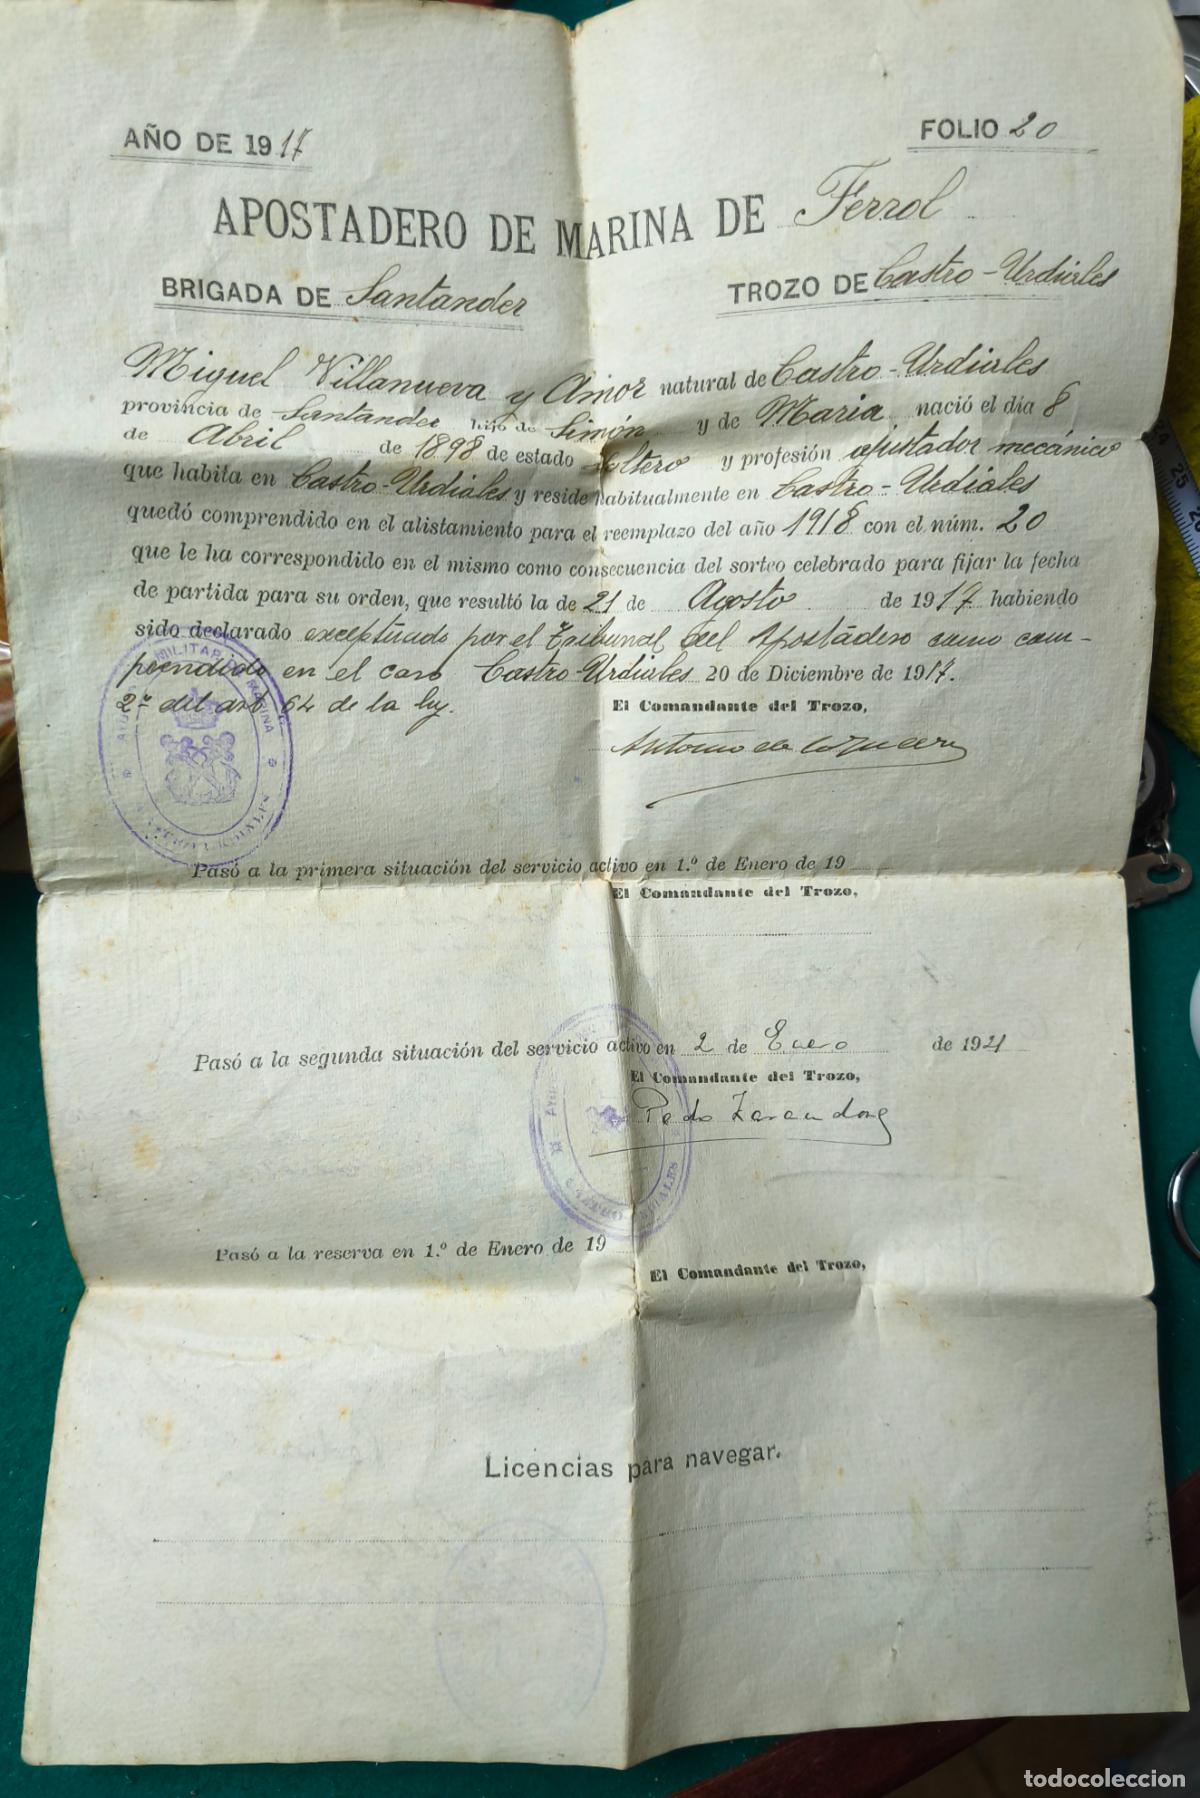 AÑO DE 1917
FOLIO 20
APOSTADERO DE MARINA DE Ferrol
BRIGADA DE Santander
TROZO DE Castro-Urdiales
Miguel Villanueva y Amor natural de Castro-Urdiales
provincia de Santander hijo de Simón y de Maria nació el día 8
de Abril de 1898 de estado Soltero y profesión ajustador mecánico
que habita en Castro-Urdiales y reside habitualmente en Castro-Urdiales
quedó comprendido en el alistamiento para el reemplazo del año 1918 con el núm. 20
que le ha correspondido en el mismo como consecuencia del sorteo celebrado para fijar la fecha
de partida para su orden, que resultó la de 21 de Agosto de 1917 habiendo
sido declarado exceptuado por el Tribunal del Apostadero como com-
prendido en el caso Castro-Urdiales 20 de Diciembre de 1917.
2º del art 64 de la ley.
El Comandante del Trozo,
Antonio de
MILITAR DE MARINA
CASTRO URDIALES
Pasó a la primera situación del servicio activo en 1.º de Enero de 19
El Comandante del Trozo,
Pasó a la segunda situación del servicio activo en 2 de Enero de 1921
El Comandante del Trozo,
CASTRO URDIALES
Pasó a la reserva en 1.º de Enero de 19
El Comandante del Trozo,
Licencias para navegar.
25
todocoleccion